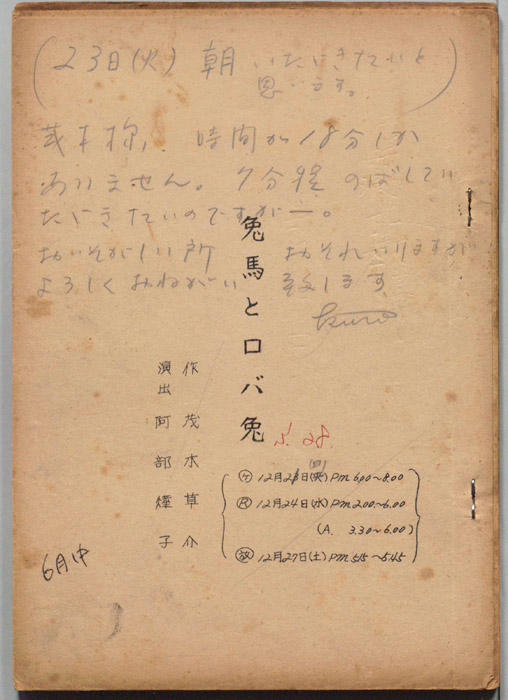 (23日(火) 朝 いただきたいと
思います。)
茂木様、 時間が18分しか
ありません。 7分程 のばしてい
ただきたいのですがー。
おいそがしい所 おそれいりますが
よろしくおねがい 致します
兎馬とロバ兎
作 茂木草介
演出 阿部煙子
5' 28"
㋘ 12月2日() PM 6.00~8.00
Ⓡ 12月24日(水) PM 2.00~6.00
(A. 3.30~6.00)
㊙ 12月27日(土) PM 5.15~5.45
6月中